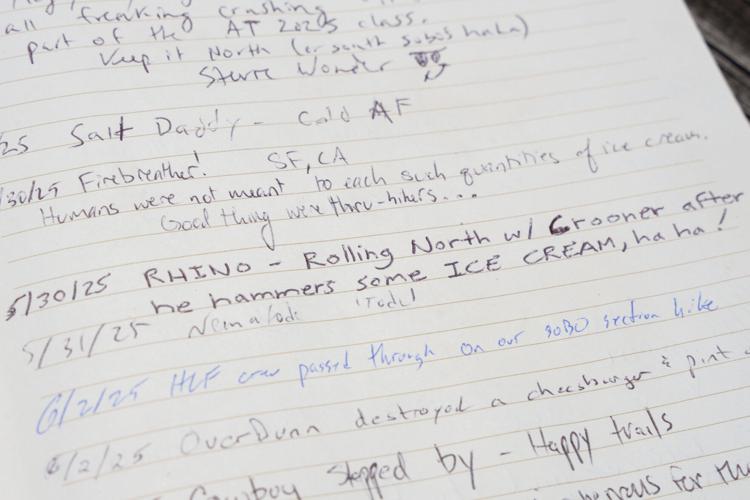 all freaking crashing
part of the AT 2025 class.
Keep it North (or south sobos haha)
Stevie Wonder
25 Salt Daddy - Cold AF
/30/25 Firebreather! SF, CA
Humans were not meant to each such quantities of ice cream.
Good thing we're thru-hikers...
5/30/25 RHINO - Rolling North w/ Crooner after
he hammers some ICE CREAM, ha ha!
5/31/25
6/2/25 HLF crew passed through on our SOBO section hike
6/2/25 OverDunn destroyed a cheesburger & pint
Cowboy stopped by - Happy trails
for